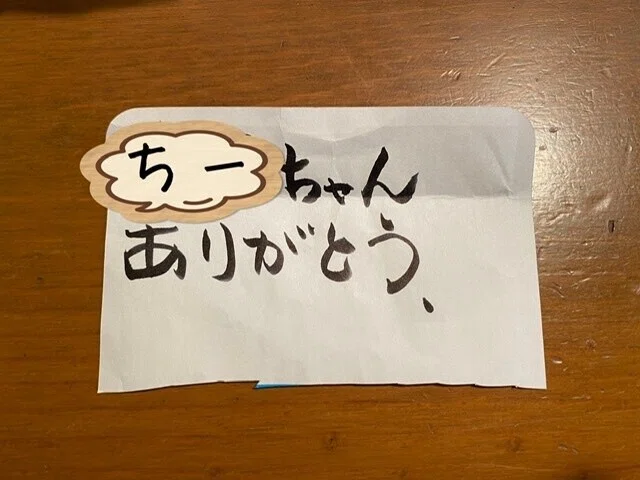 ちーちゃん
ありがとう、